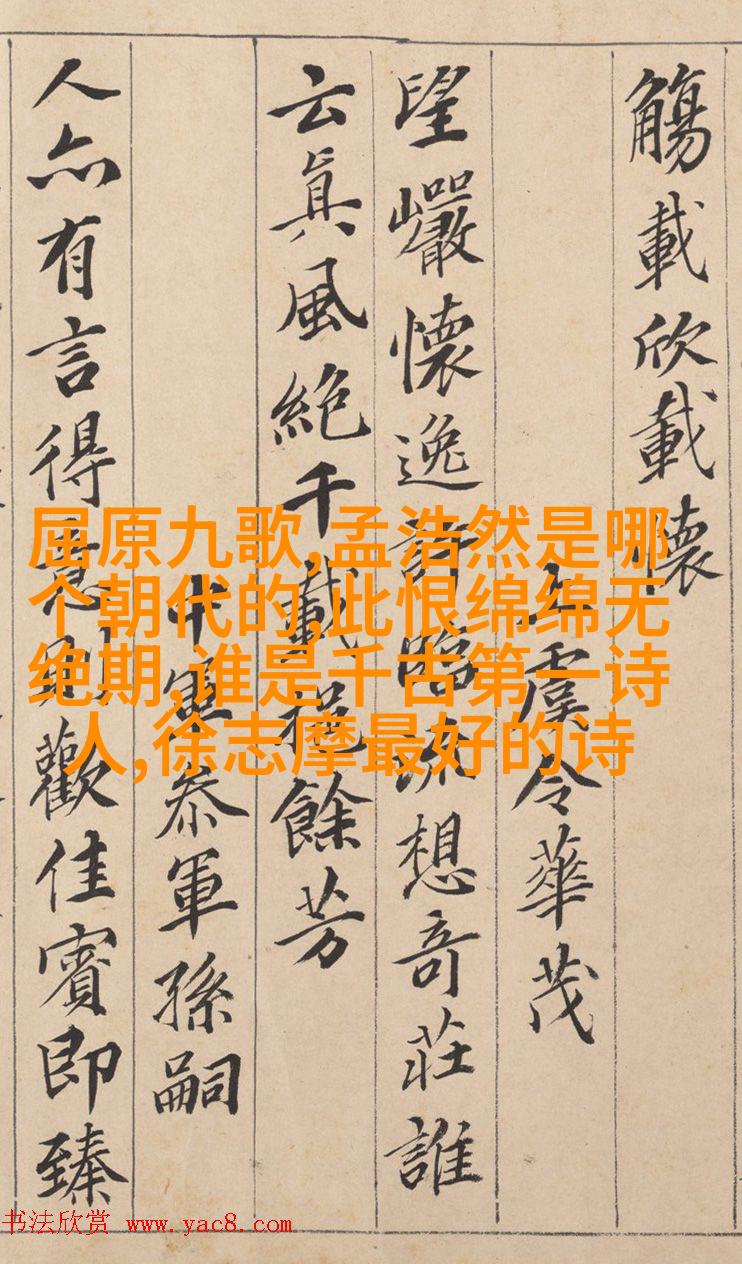 觴載欣載懷
上虞令華茂
望巖懷逸許臨流想奇莊誰
云眞風絶千載挹餘芳
中軍叅軍孫嗣
人亦有言得意則歡佳賓即臻
屈原九歌,孟浩然是哪
个朝代的,此恨绵绵无
绝期,谁是千古第一诗
人,徐志摩最好的诗
书法欣赏 www.yac8.com